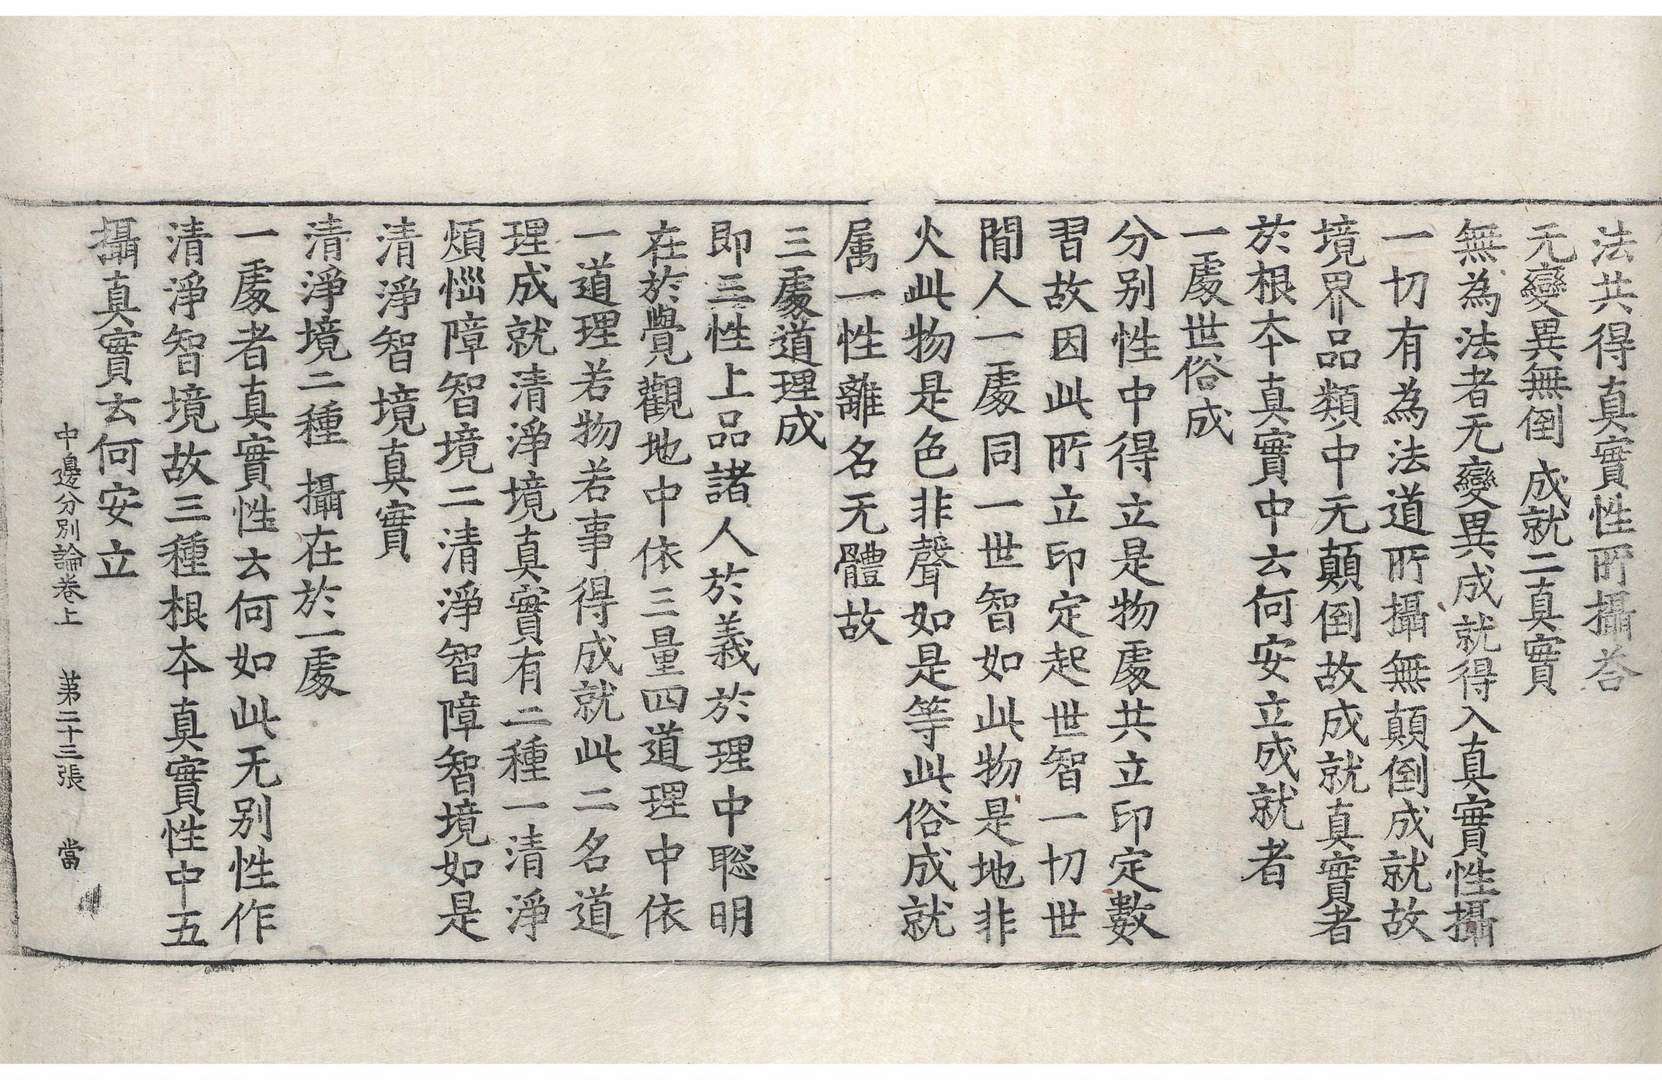 法共得真實性所攝荅
无變異無倒 成就二真實
無為法者无變異成就得入真實性攝
一切有為法道所攝無顛倒成就故
境界品類中无顛倒故成就真實者
於根夲真實中云何安立成就者
一處世俗成
分別性中得立是物處共立印定數
習故因此所立印定起世智一切世
間人一處同一世智如此物是地非
火此物是色非聲如是等此俗成就
属一性離名无體故
三處道理成
即三性上品諸人於義於理中聡明
在於覺觀地中依三量四道理中依
一道理若物若事得成就此二名道
理成就清淨境真實有二種一清淨
煩惱障智境二清淨智障智境如是
清淨智境真實
清淨境二種 攝在於一處
一處者真實性云何如此无別性作
清淨智境故三種根夲真實性中五
攝真實云何安立
中邊分別論卷上 第二十三張 當